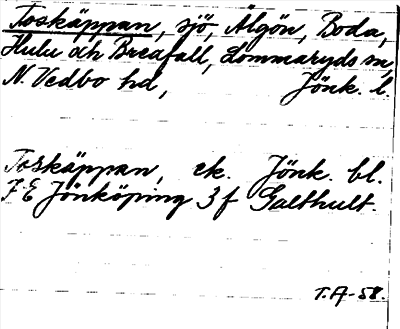 Toskäppan, sjö, Älgön, Boda,
Hulu och Breafall, Lommaryds sn,
N. Vedbo hd, Jönk. l.
Toskäppan, ek. Jönk. bl.
7 E Jönköping 3 f Galthult.
T.A-58.